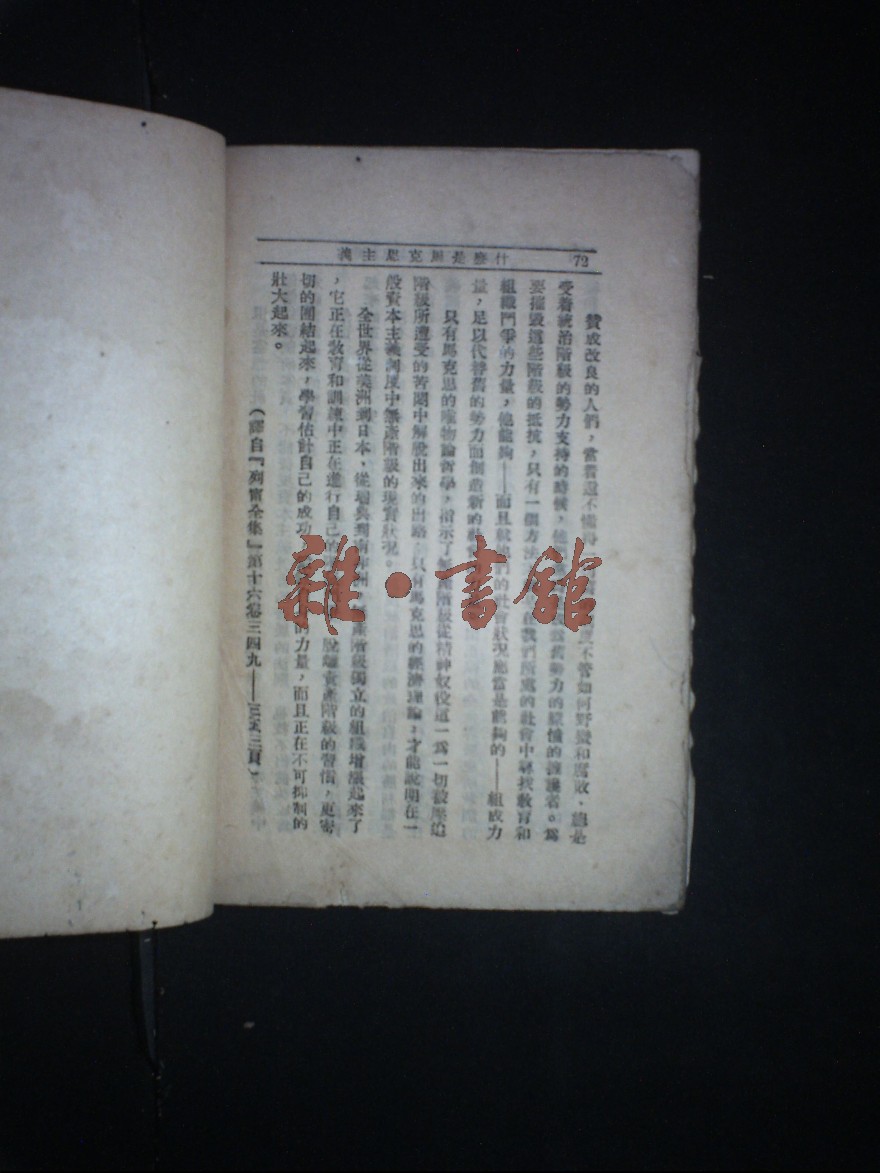 72
什麽是馬克思主義
贊成改良的人們,當着還不懂得 不管如何野蠻和腐敗,總是
受着統治階級的勢力支持的時候, 舊勢力的 擁護者。爲
要摧毀這些階級的抵抗,只有一個方法 在我們所處的社會中尋找教育和
組織鬥爭的力量,他能夠——而且 的 會狀況應當是能夠的——組成力
量,足以代替舊的勢力而創造新的
只有馬克思的唯物論哲學,指示了 階級從精神奴役這一爲一切被壓迫
階級所遭受的苦悶中解脫出來的出路,只 馬克思的經濟理論,才能說明在一
般資本主義制度中無產階級的現實狀況。
全世界從美洲到日本,從 到南 洲 產階級獨立的組織增漲起來了
,它正在教育和訓練中正在進行自己的 脫離資產階級的習慣,更密
切的團結起來,學習估計自己的成功 的力量,而且正在不可抑制的
壯大起來。
(譯自『列甯全集』第十六卷三四九——三五三頁)
雜·書館